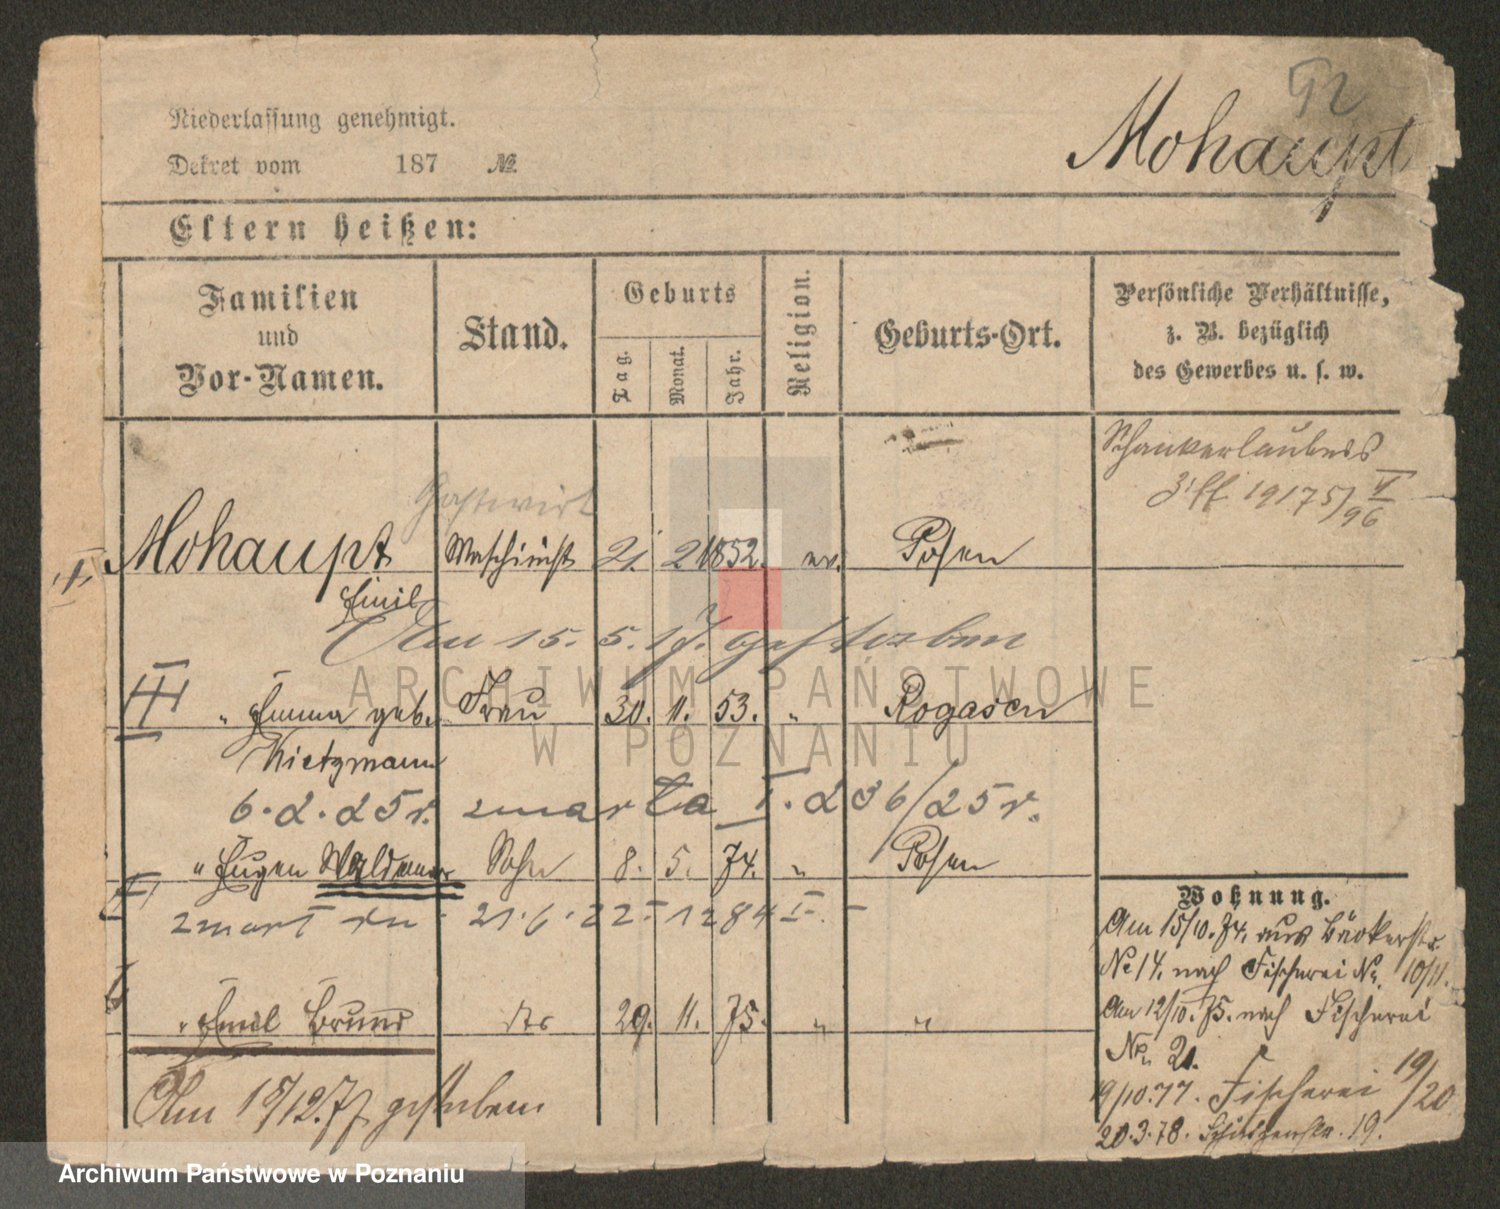 92
Niederlassung genehmigt.
Dekret vom 187 №
Mohaupt
Eltern heißen:
Familien und Vor-Namen.
Stand.
Geburts
Tag.
Monat.
Jahr.
Religion.
Geburts-Ort.
Persönliche Verhältnisse, z. B. bezüglich des Gewerbes u. s. w.
Schankerlaubnis
Ziff. 19175/ V 96
Gastwirt
Mohaupt Maschinist 21. 2 1852. ev. Posen
Emil
Am 15. 5. 17. gestorben
III " Emma geb. Frau 30. 11. 53. " Rogasen
Kietzmann
6.2.25 r. zmarła I. 236/25 r.
" Eugen Waldemar Sohn 8. 5. 74. " Posen
zmarł dn 21.6.22 - 1284 I. -
" Emil Bruno dto 29. 11. 75. " "
Am 18/12.77 gestorben
Wohnung.
Am 15/10.74. aus Bäckerstr.
No 14. nach Fischerei No. 10/11.
Am 12/10.75. nach Fischerei
No. 21.
9/10.77. Fischerei 19/20
20.3.78. Schützenstr. 19.
ARCHIWUM PAŃSTWOWE
W POZNANIU
Archiwum Państwowe w Poznaniu